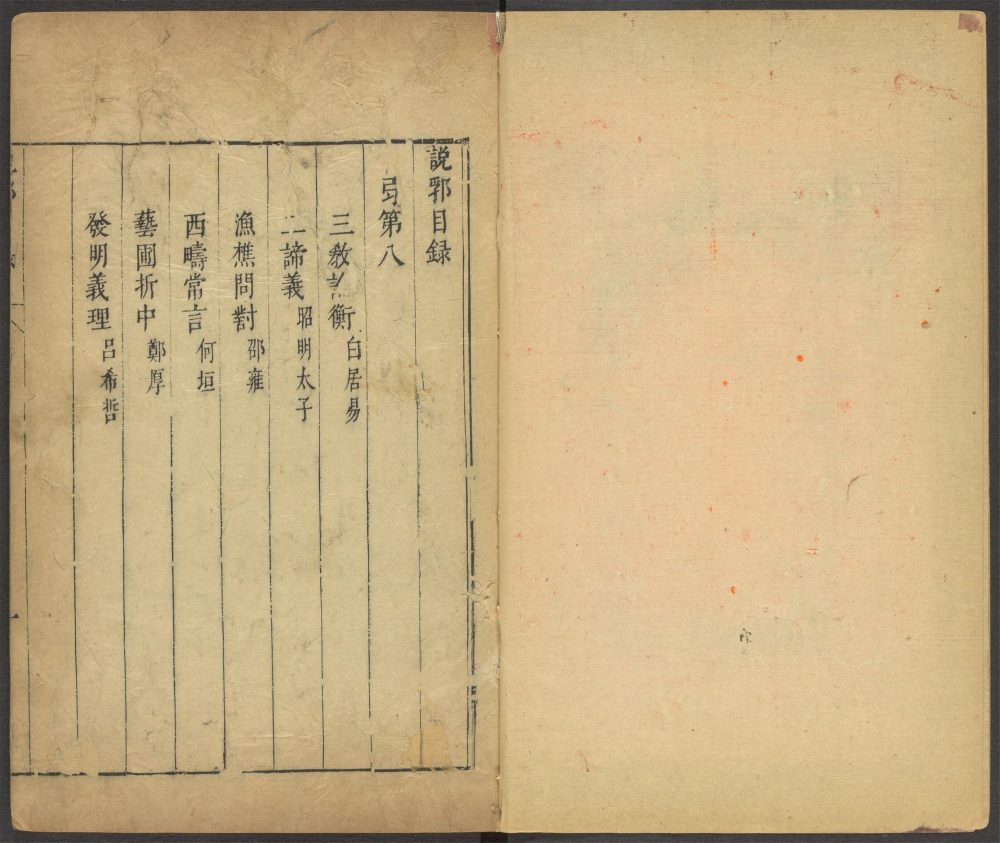 説郛目録
弓第八
三敎論衡 白居易
二諦義 昭明太子
漁樵問對 邵雍
西疇常言 何垣
藝圃折中 鄭厚
發明義理 呂希哲